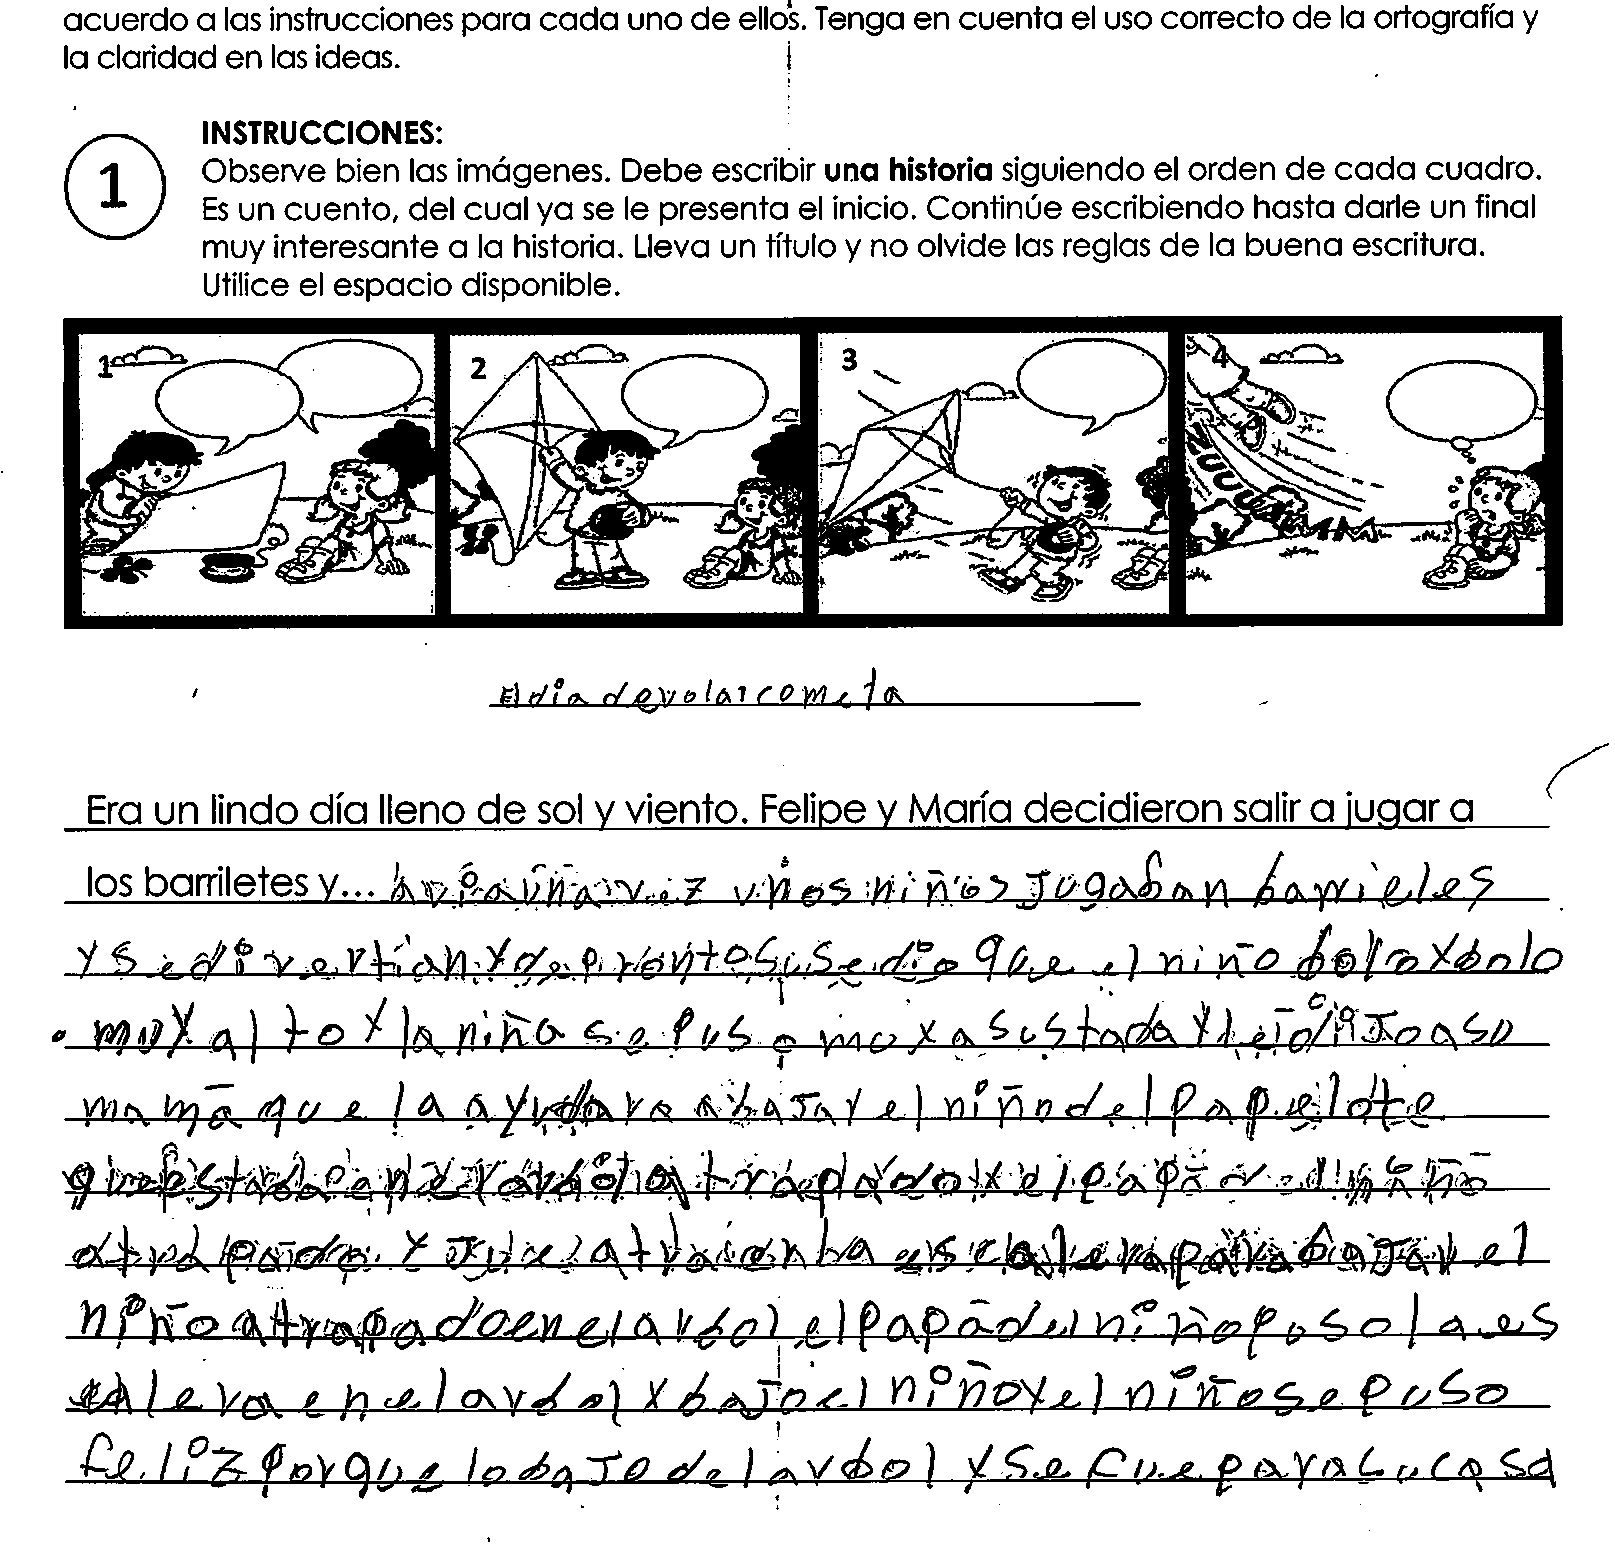 acuerdo a las instrucciones para cada uno de ellos. Tenga en cuenta el uso correcto de la ortografía y
la claridad en las ideas.
1
INSTRUCCIONES:
Observe bien las imágenes. Debe escribir una historia siguiendo el orden de cada cuadro.
Es un cuento, del cual ya se le presenta el inicio. Continúe escribiendo hasta darle un final
muy interesante a la historia. Lleva un título y no olvide las reglas de la buena escritura.
Utilice el espacio disponible.
1 2 3 4
ZUUUUMMM
El dia de volar cometa
Era un lindo día lleno de sol y viento. Felipe y María decidieron salir a jugar a
los barriletes y... avia uña vez unos niños jugaban barrieles
y se divertian y de pronto susedio que el niño bolo y bolo
muy alto y la niña se puso muy asustada y le dijo a su
mamā que la ayudara a bajar el niño del papuelote
atrapado y el papā
y atraer una escalera para bajar el
niño atrapado en el arbol el papā del niño puso la es
calera en el arbol y bajo el niño y el niño se puso
feliz porque lo bajo del arbol y se fue para su casa